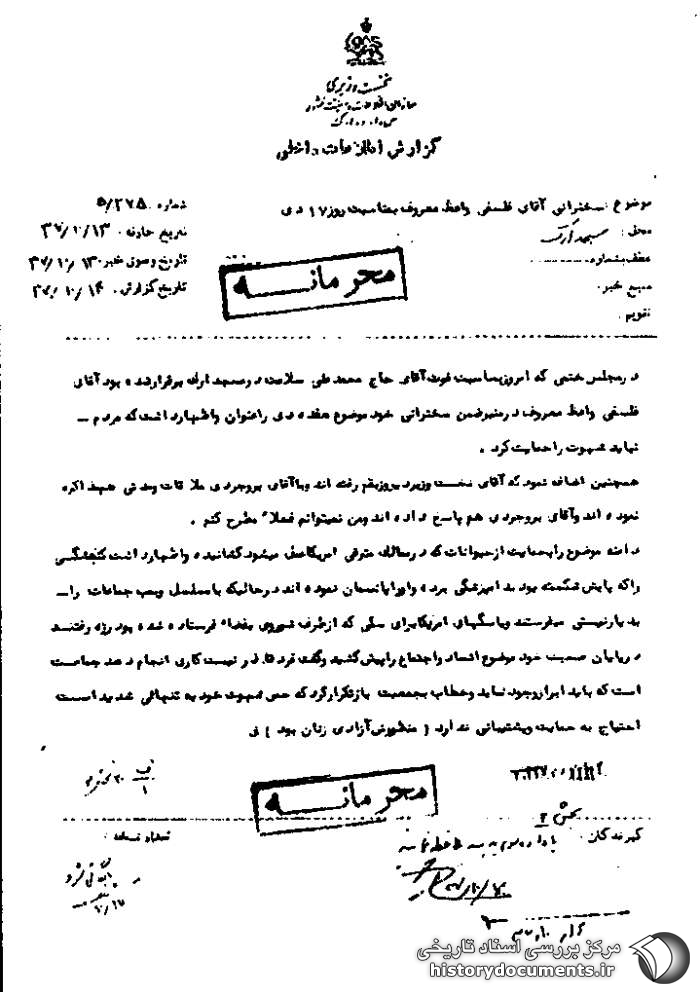 نخست وزیری
سازمان اطلاعات و امنیت کشور
گزارش اطلاعات داخلی
موضوع : سخنرانی آقای فلسفی واعظ معروف بمناسبت روز ۱۷ دی
شماره : ۲۷۵/۵
محل : مسجد ارک
تاریخ حادثه : ۳۷/۱۰/۱۳
عطف بشماره
تاریخ وصول خبر : ۳۷/۱۰/۱۳
منبع خبر :
تاریخ گزارش : ۳۷/۱۰/۱۴
تقویم :
محرمانه
در مجلس ختمی که امروز بمناسبت فوت آقای حاج محمد علی سلامت در مسجد ارک برقرار شده بود آقای
فلسفی واعظ معروف در منبر ضمن سخنرانی خود موضوع هفده دی را عنوان و اظهار داشت که مردم –
نباید شهوت را حمایت کرد .
همچنین اضافه نمود که آقای نخست وزیر دیروز بقم رفته اند و با آقای بروجردی ملاقات و مدتی هم مذاکره
نموده اند و آقای بروجردی هم پاسخ داده اند و من نمیتوانم فعلا" مطرح کنم .
دامنه موضوع را بحمایت از حیوانات که در ممالک مترقی امریکا عمل میشود کشانیده و اظهار داشت گنجشگی
را که پایش شکسته بود به امپزشگی برده و او را پانسمان نموده اند در حالیکه با مسلسل و بمب جماعات را –
بدیار نیستی میفرستند و یا سگهای امریکا برای سگی که از طرف شوروی بفضاء فرستاده شده بود رژه رفتند
در پایان صحبت خود موضوع اتحاد و اجتماع را پیش کشید و گفت فرد قادر نیست کاری انجام دهد جماعت
است که باید ابراز وجود نماید و خطاب بجمعیت باز تکرار کرد که حس شهوت خود به تنهائی شدید است
احتیاج به حمایت و پشتیبانی ندارد ( منظورش آزادی زنان بود ) ن
محرمانه
بخش ۲
گیرندگان :
تعداد نسخه :
بایگانی شود
مرکز بررسی اسناد تاریخی
historydocuments.ir